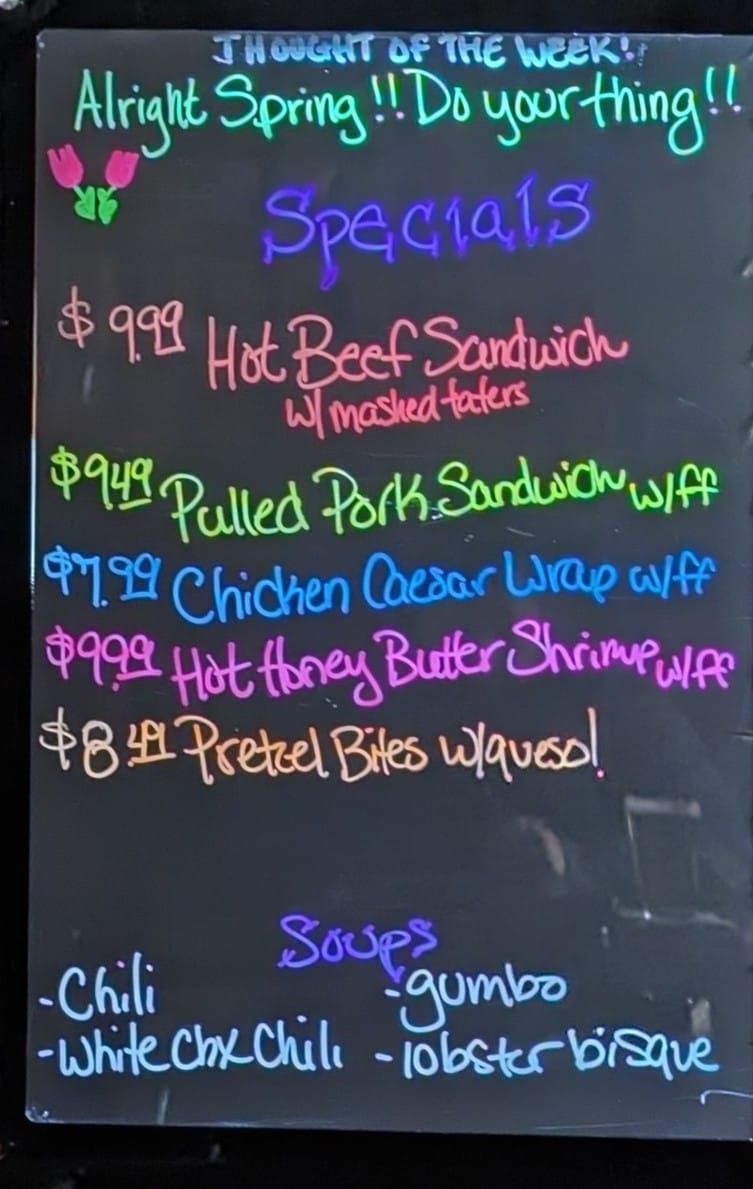 THOUGHT OF THE WEEK!
Alright Spring!! Do your thing!!
Specials
$9.99 Hot Beef Sandwich
w/ mashed taters
$9.49 Pulled Pork Sandwich w/ff
$7.99 Chicken Caesar Wrap w/ff
$9.99 Hot Honey Butter Shrimp w/ff
$8.49 Pretzel Bites w/queso!
Soups
-Chili
-gumbo
-White Chx Chili
-lobster bisque